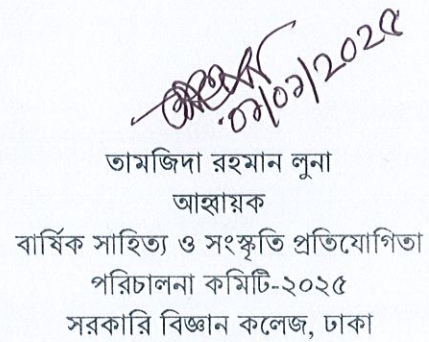 ০২/০২/২০২৫
তামজিদা রহমান লুনা
আহ্বায়ক
বার্ষিক সাহিত্য ও সংস্কৃতি প্রতিযোগিতা
পরিচালনা কমিটি-২০২৫
সরকারি বিজ্ঞান কলেজ, ঢাকা